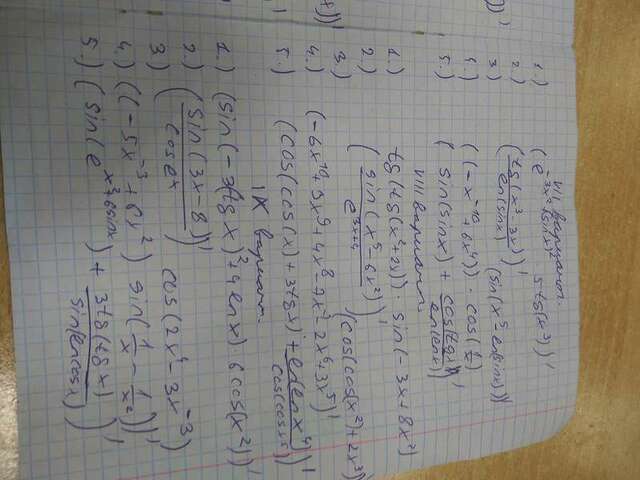 VII вариант.
1.) (e^-3x²+(sinx)² 5tg(x³))'
2.) (tg(x³-3x)/en(sinx))'
3.) (sin(x⁵-en(sinx)))'
4.) ((-x^-10+6x⁴)) · cos(1/x)
5.) (sin(sinx) + cos(tgx)/en(enx))'
VIII вариант.
1.) tg(tg(x²+2x)) · sin(-3x+8x²)
2.) (sin(x⁵-6x²)/e^3x+4)'
3.) (cos(cos(x²)+2x³)
4.) (-6x¹⁰+9x⁹+4x⁸-7x⁷-2x⁶+3x⁵)'
5.) (cos(cos(x)+3tgx) + enenx⁴/cos(cosx⁵))'
IX вариант.
1.) (sin(-3(tgx)²+4enx) · 6cos(x²))'
2.) (sin(3x-8)/cose^x)'
3.) cos(2x⁴-3x^-3)
4.) ((-5x^-3+6x²) sin(1/x-1/x²))'
5.) (sin(e^x²+6sinx) + 3tg(tgx)/sin(encosx))'